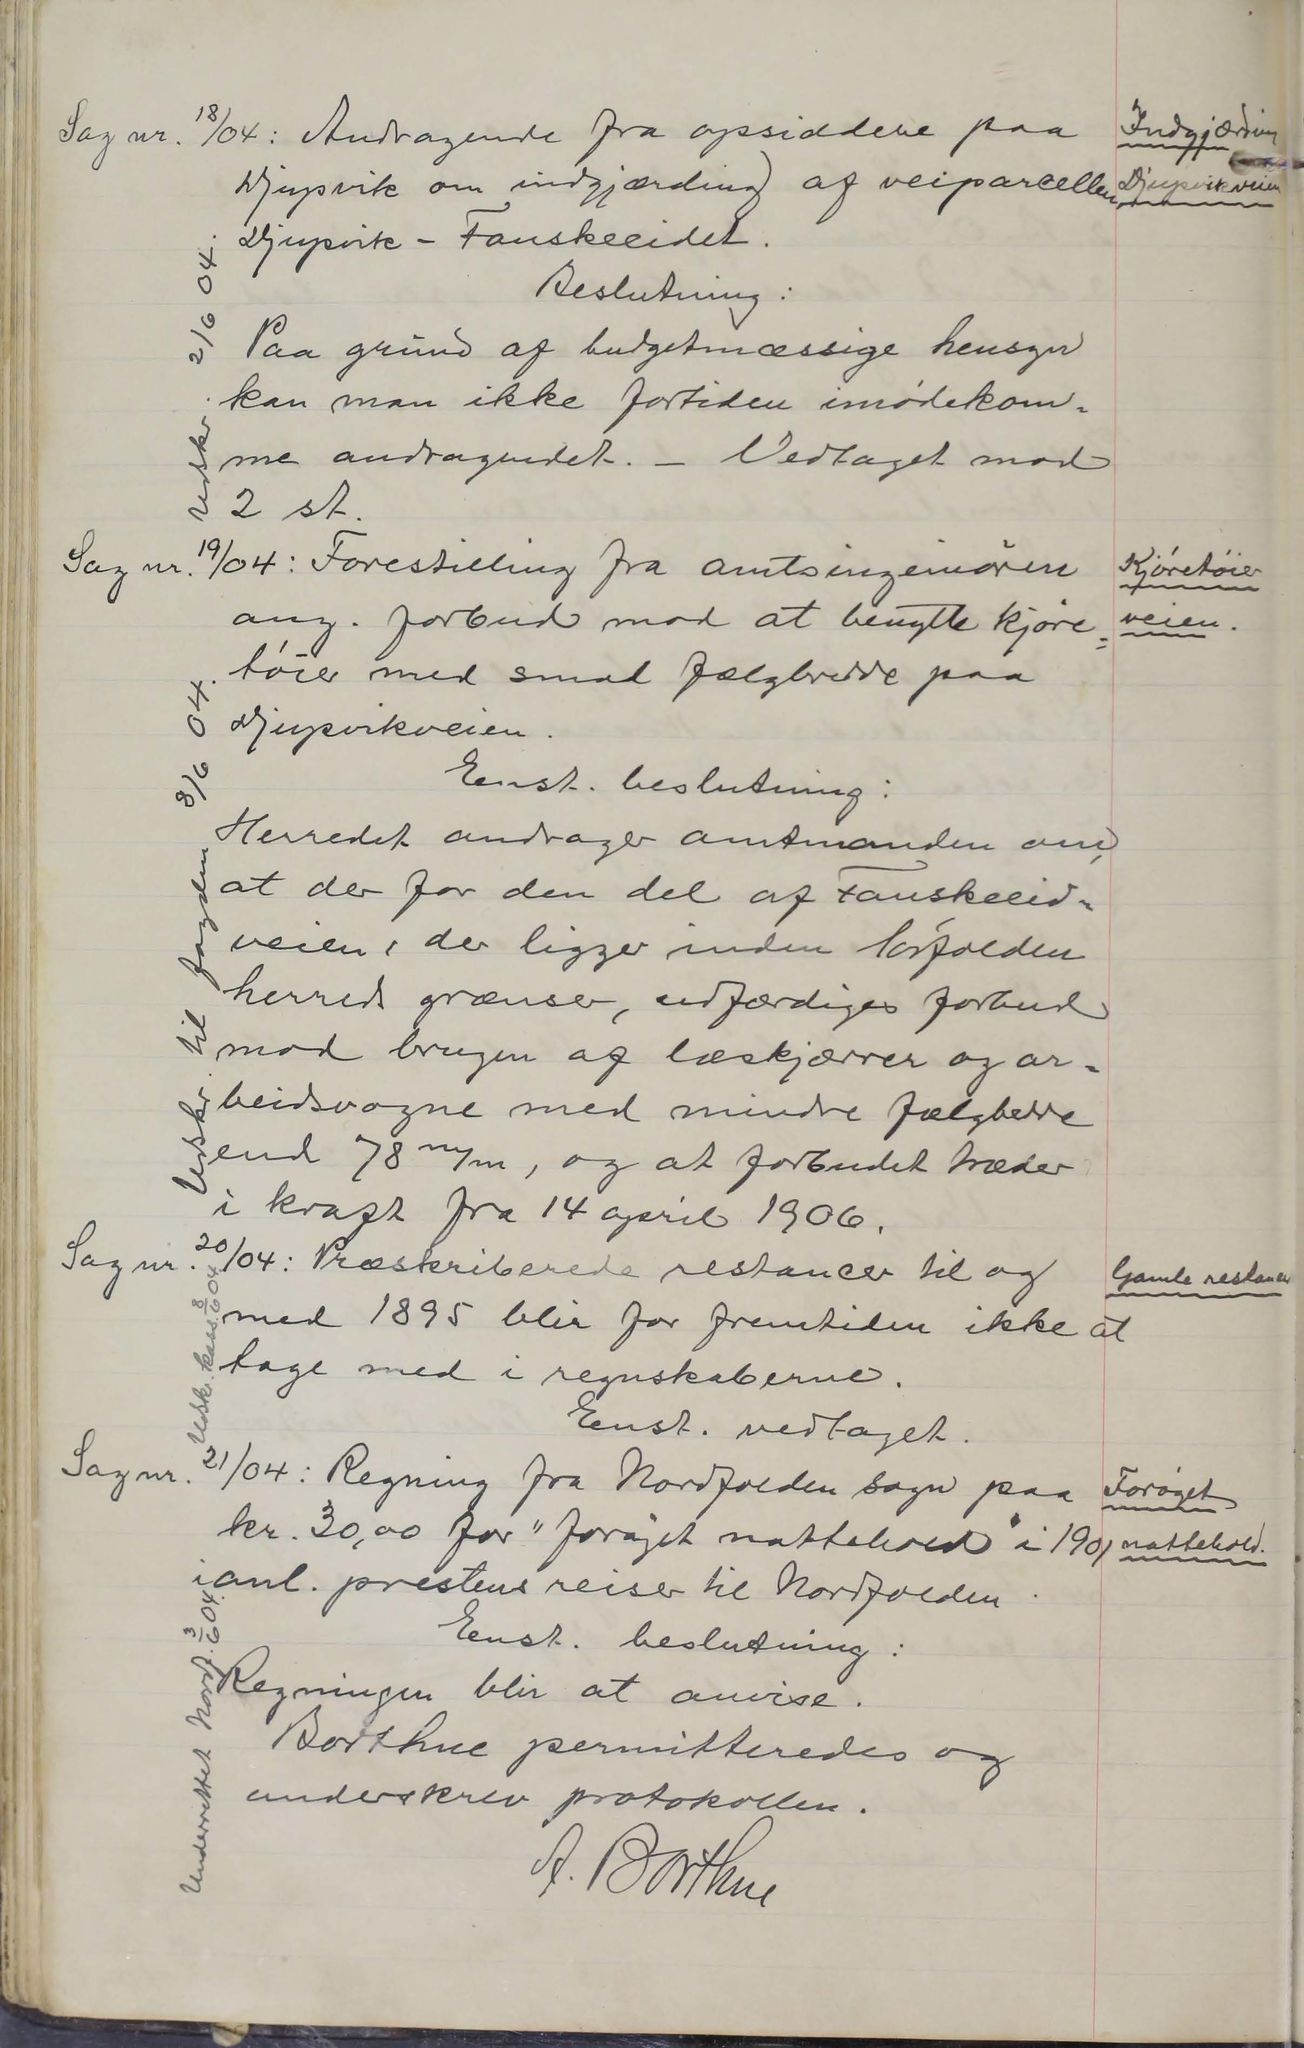 Sag nr. 18/04: Andragende fra opsiddere paa
Djupvik om indgjærding af veiparcellen
Djupvik - Fauskeeidet.
Beslutning:
Paa grund af budgetmæssige hensyn
kan man ikke fortiden imødekom-
me andragendet. - Vedtaget mod
2 st.
Sag nr. 19/04: Forestilling fra amtsingeniøren
ang. forbud mod at benytte kjøre-
tøier med smal fælgbredde paa
Djupvikveien.
Enst. beslutning:
Herredet andrager amtmanden om,
at der for den del af Fauskeeid-
veien, der ligger inden Sørfolden
herreds grænser, udfærdiges forbud
mod brugen af læskjærrer og ar-
beidsvogne med mindre fælgbedde
end 78 m/m, og at forbudet træder
i kraft fra 14 april 1906.
Sag nr. 20/04: Præskriberede restancer til og
med 1895 blir for fremtiden ikke at
tage med i regnskaberne.
Enst. vedtaget.
Sag nr. 21/04: Regning fra Nordfolden sogn paa
kr. 30,00 for "forøget nattehold" i 1901
i anl. prestens reiser til Nordfolden.
Enst. beslutning:
Regningen blir at anvise.
Borthne permitteredes og
underskrev protokollen.
A. Borthne
Indgjærding
Djupvikveien
Kjøretøier
veien.
Gamle restancer
Forøget
nattehold.
Udskr. 2/6 04.
Udskr. til fogden 8/6 04.
Udskr. kass. 8/6 04
Underrettet Nordf. 3/6 04.